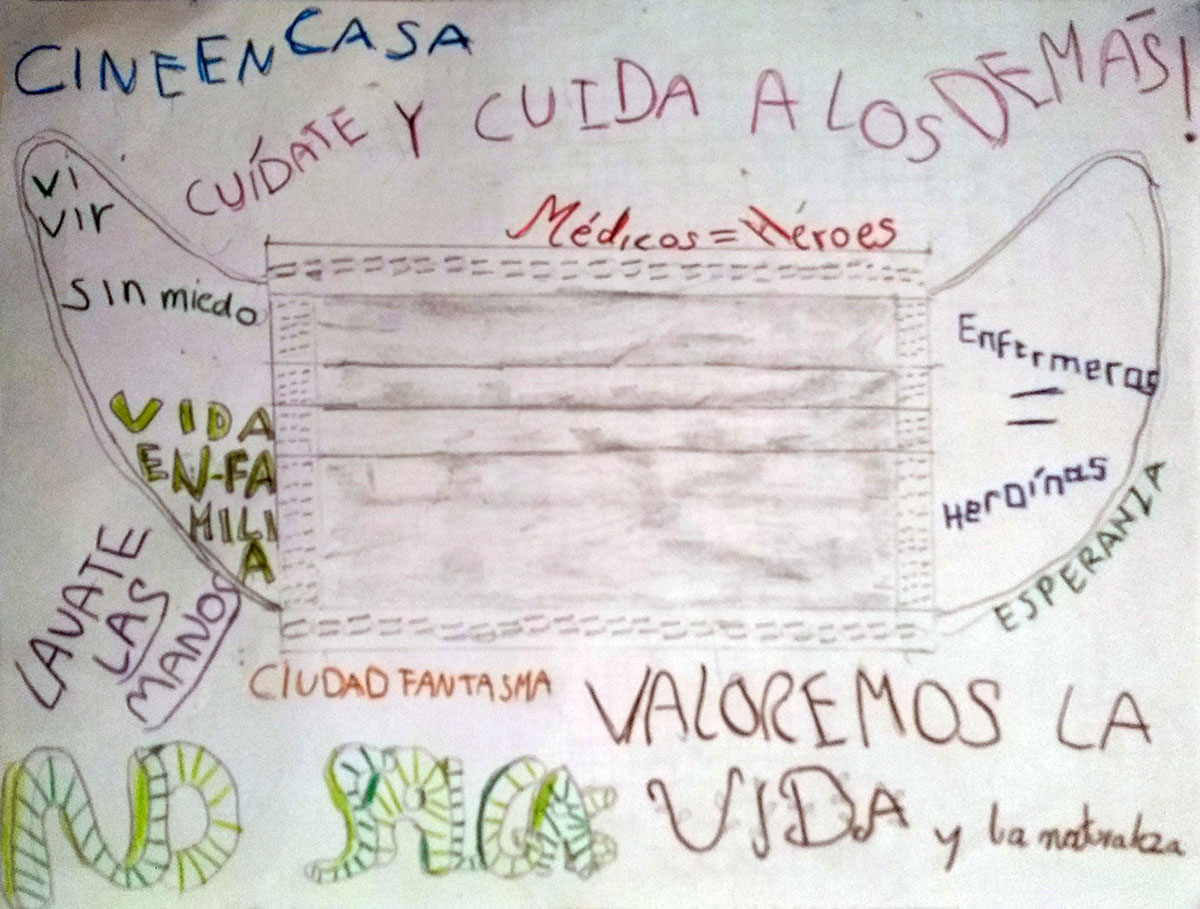 CINE EN CASA
CUÍDATE Y CUIDA A LOS DEMÁS!
VI
VIr
sin miedo
Médicos = Héroes
Enfermeras
=
Heroínas
VIDA
EN-FA
MILI
A
ESPERANZA
LAVATE
LAS
MANOS
CIUDAD FANTASMA
VALOREMOS LA
VIDA y la naturaleza
NO